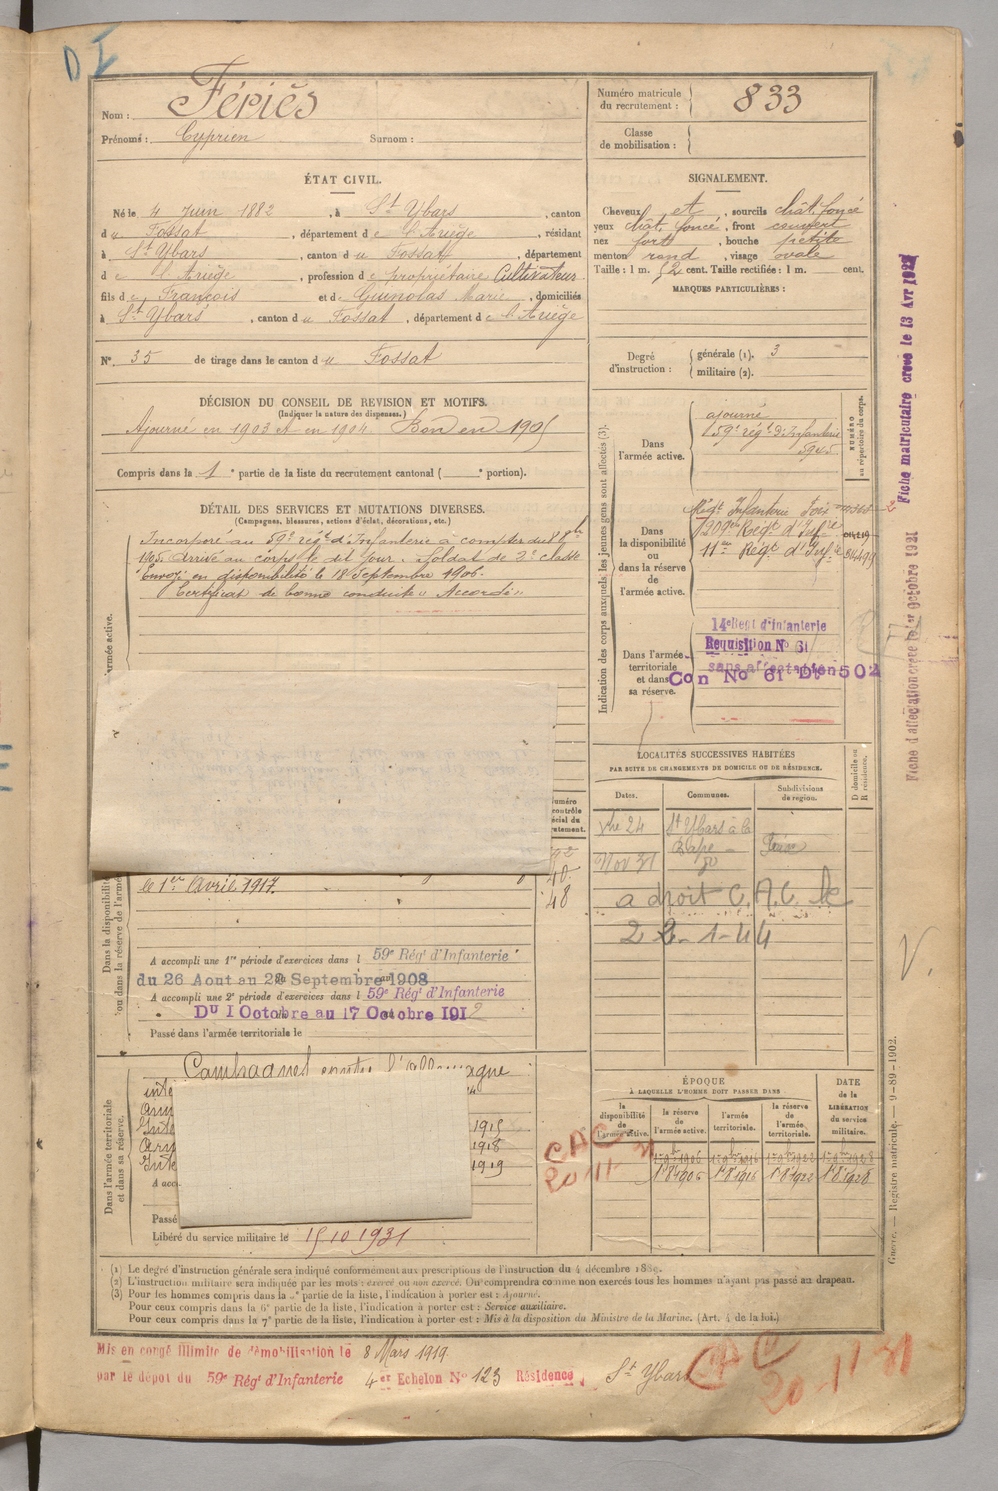 D I
Nom : Fériès
Prénoms : Cyprien Surnom :
ÉTAT CIVIL.
Né le 4 Juin 1882, à St Ybars, canton
du Fossat, département de l'Ariège, résidant
à St Ybars, canton du Fossat, département
de l'Ariège, profession de propriétaire Cultivateur
fils de François et de Marie, domiciliés
à St Ybars, canton du Fossat, département de l'Ariège
N° 35 de tirage dans le canton du Fossat
DÉCISION DU CONSEIL DE REVISION ET MOTIFS.
(Indiquer la nature des dispenses.)
Ajourné en 1903 et en 1904 Bon en 1905
Compris dans la 1e partie de la liste du recrutement cantonal ( e portion).
DÉTAIL DES SERVICES ET MUTATIONS DIVERSES.
(Campagnes, blessures, actions d'éclat, décorations, etc.)
Incorporé au 59e rég.t d'Infanterie à compter du 8 8bre
1905. Arrivé au corps le dit jour. Soldat de 2e classe
Envoyé en disponibilité le 18 Septembre 1906.
Certificat de bonne conduite « Accordé »
le 1er Avril 1917.
A accompli une 1re période d'exercices dans l 59e Rég.t d'Infanterie
du 26 Aout au Septembre 1908
A accompli une 2e période d'exercices dans l 59e Rég.t d'Infanterie
Du 1 Octobre au 17 Octobre 1912
Passé dans l'armée territoriale le
Campagnes contre l'Allemagne
1915
1918
1919
A acc
Passé
Libéré du service militaire le 15 10 1931
Dans la disponibilité
ou dans la réserve de l'armée
Dans l'armée territoriale
et dans sa réserve.
Numéro matricule
du recrutement : 833
Classe
de mobilisation :
SIGNALEMENT.
Cheveux et, sourcils chât. foncé
yeux chât. foncé, front couvert
nez fort, bouche petite
menton rond, visage ovale
Taille : 1 m. 52 cent. Taille rectifiée : 1 m. cent.
MARQUES PARTICULIÈRES :
Degré
d'instruction :
générale (1). 3
militaire (2).
Indication des corps auxquels les jeunes gens sont affectés (3).
NUMÉRO
au répertoire du corps.
Dans
l'armée active.
ajourné
59e rég.t d'Infanterie
5945
Dans
la disponibilité
ou
dans la réserve
de
l'armée active.
Rég.t Infanterie Foix
209e Rég.t d'Inf.rie
11e Rég.t d'Inf.ie
Dans l'armée
territoriale
et dans
sa réserve.
14e Regt d'infanterie
Requisition N° 61
sans affectation
Con No 61 Don 502
LOCALITÉS SUCCESSIVES HABITÉES
PAR SUITE DE CHANGEMENTS DE DOMICILE OU DE RÉSIDENCE.
Dates. Communes. Subdivisions de région. D domicile ou R résidence.
24 St Ybars à la
Foix
Nov 31
a droit C.A.C. le
22-1-44
ÉPOQUE
À LAQUELLE L'HOMME DOIT PASSER DANS
la disponibilité de l'armée active.
la réserve de l'armée active.
l'armée territoriale.
la réserve de l'armée territoriale.
DATE de la LIBÉRATION du service militaire.
1r 9bre 1906 1r 9bre 1916 1r 9bre 1922 1r 9bre 1928
1r 8 1906 1r 8 1916 1r 8 1922 1r 8 1928
CAC
20 11 31
(1) Le degré d'instruction générale sera indiqué conformément aux prescriptions de l'instruction du 4 décembre 1889.
(2) L'instruction militaire sera indiquée par les mots : exercé ou non exercé. On comprendra comme non exercés tous les hommes n'ayant pas passé au drapeau.
(3) Pour les hommes compris dans la e partie de la liste, l'indication à porter est : Ajourné.
Pour ceux compris dans la 6e partie de la liste, l'indication à porter est : Service auxiliaire.
Pour ceux compris dans la 7e partie de la liste, l'indication à porter est : Mis à la disposition du Ministre de la Marine. (Art. 4 de la loi.)
Mis en congé illimité de démobilisation le 8 Mars 1919
par le dépot du 59e Rég.t d'Infanterie 4er Echelon N° 123 Résidence St Ybars
CAC
20-11 31
Fiche matriculaire creee le 13 Avr
Fiche d'affectation creee le 1er Octobre 1921
Guerre. — Registre matricule. — 9-89-1902.